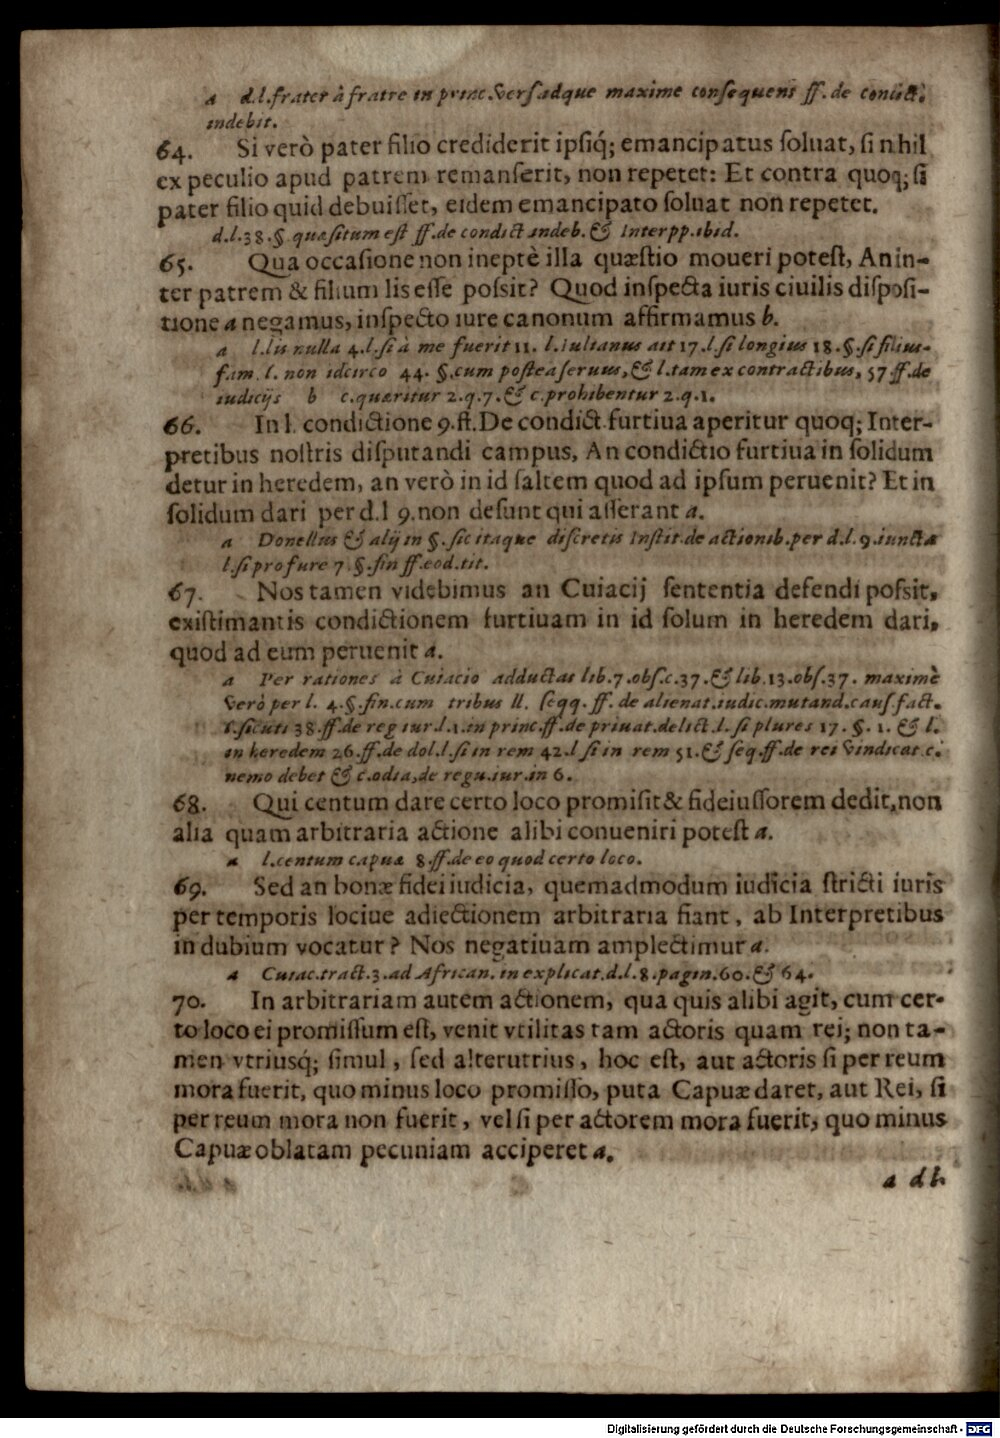 a d.l.frater à fratre in princ.versadque maxime consequens ff.de condict.
indebit.
64. Si verò pater filio crediderit ipsiq́; emancipatus soluat, si nihil
ex peculio apud patrem remanserit, non repetet: Et contra quoq; si
pater filio quid debuisset, eidem emancipato soluat non repetet.
d.l.38.§.quæsitum est ff.de condict indeb. & Interpp.ibid.
65. Qua occasione non ineptè illa quæstio moueri potest, An in-
ter patrem & filium lis esse possit? Quod inspecta iuris ciuilis disposi-
tione a negamus, inspecto iure canonum affirmamus b.
a l.lis nulla 4.l.si à me fuerit 11. l.Iulianus ait 17.l.si longius 18.§.si filius-
fam. l. non idcirco 44. §.cum postea seruus, & l.tam ex contractibus, 57.ff.de
iudicijs b c.quæritur 2.q.7.& c.prohibentur 2.q.1.
66. In l. condictione 9.ff.De condict.furtiua aperitur quoq; Inter-
pretibus nostris disputandi campus, An condictio furtiua in solidum
detur in heredem, an verò in id saltem quod ad ipsum peruenit? Et in
solidum dari per d.l 9.non desunt qui asserant a.
a Donellus & alij in §.sic itaque discretis Instit.de actionib.per d.l.9.iuncta
l.si pro fure 7.§.fin ff.eod.tit.
67. Nos tamen videbimus an Cuiacij sententia defendi possit,
existimantis condictionem furtiuam in id solum in heredem dari,
quod ad eum peruenit a.
a Per rationes à Cuiacio adductas lib.7.obs.c.37.& lib.13.obs.37. maximè
verò per l. 4.§.fin.cum tribus ll. seqq. ff. de alienat.iudic.mutand.caus.fact.
l.sicuti 38.ff.de reg iur l.1.in princ.ff.de priuat.delict.l.si plures 17. §. 1. & l.
in heredem 26.ff.de dol.l.si in rem 42.l si in rem 51.& seq.ff.de rei vindicat.c.
nemo debet & c.odia, de regu.iur.in 6.
68. Qui centum dare certo loco promisit & fideiussorem dedit, non
alia quam arbitraria actione alibi conueniri potest a.
a l.centum capuæ 8.ff.de eo quod certo loco.
69. Sed an bonæ fidei iudicia, quemadmodum iudicia stricti iuris
per temporis lociue adiectionem arbitraria fiant, ab Interpretibus
in dubium vocatur? Nos negatiuam amplectimur a.
a Cuiac.tract.3.ad African.in explicat.d.l.8.pagin.60.& 64.
70. In arbitrariam autem actionem, qua quis alibi agit, cum cer-
to loco ei promissum est, venit vtilitas tam actoris quam rei; non ta-
men vtriusq́; simul, sed alterutrius, hoc est, aut actoris si per reum
mora fuerit, quo minus loco promisso, puta Capuæ daret, aut Rei, si
per reum mora non fuerit, vel si per actorem mora fuerit, quo minus
Capuæ oblatam pecuniam acciperet a.
a d l.
Digitalisierung gefördert durch die Deutsche Forschungsgemeinschaft - DFG